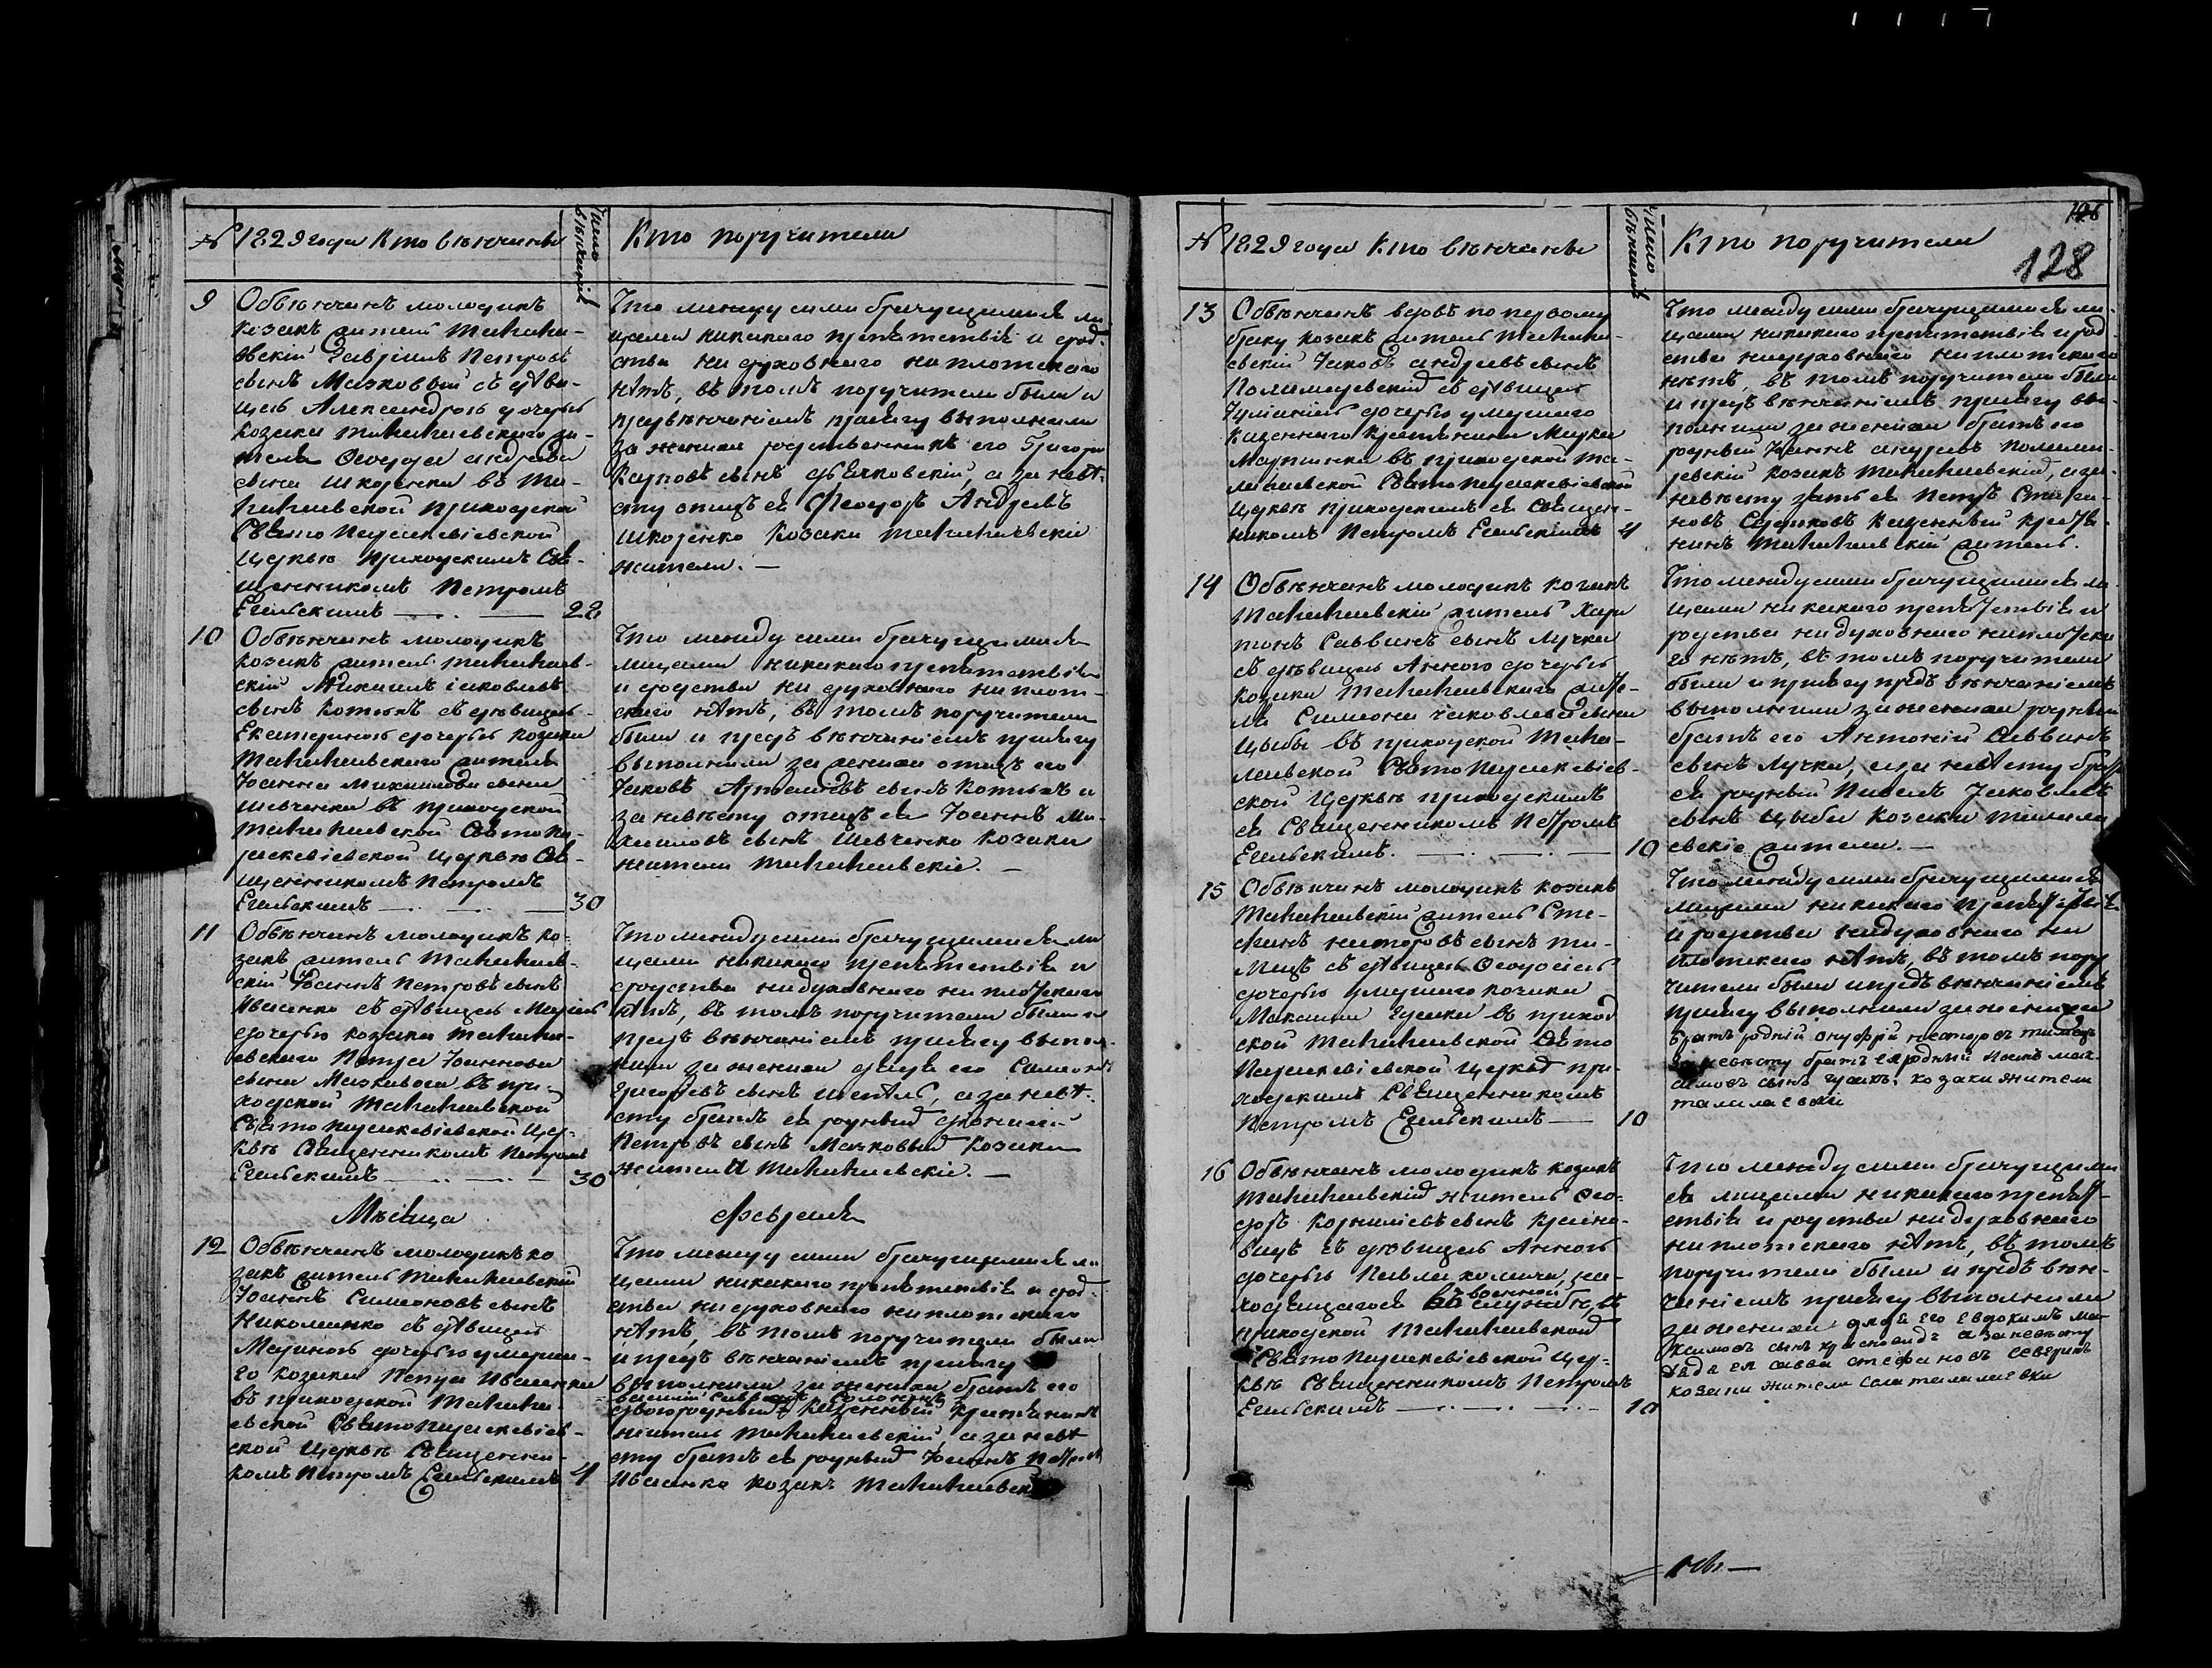 № 1829 года Кто вѣнчаны
Число вѣнчаній
Кто поручители
9
Обвѣнчанъ молодикъ
козакъ житель Талала-
евскій Гавріилъ Петровъ
сынъ Мазковый съ дѣви-
цею Александрою дочерью
козака талалаевскаго жи-
теля Ѳеодора андреева
сына Шкоренка въ Та-
лалаевской приходской
Свято Параскевіевской
церкви приходскимъ Свя-
щенникомъ Петромъ
Егельскимъ 28
Что между сими брачущимися ли-
цами никакого препятствія и срод-
ства ни духовного ни плотского
нѣтъ, въ томъ поручители были и
предвѣнчаніемъ присягу выполнили
за жениха родственникъ его Григорій
Карповъ сынъ а за невѣ-
сту отецъ ея Феодоръ Андреевъ
Шкоренко козаки талалаевскіе
жители.
10
Обвѣнчанъ молодикъ
козакъ житель талалаев-
скій Михаилъ іаковлевъ
сынъ Котлякъ съ дѣвицею
Екатериною дочерью козака
талалаевскаго жителя
Іоанна Михайлова сына
Шевченка въ приходской
талалаевской Свято Па-
раскевіевской церкви Свя-
щенникомъ Петромъ
Егельскимъ 30
Что между сими брачущимися
лицами никакого препятствія
и сродства ни духовного ни плот-
ского нѣтъ, въ томъ поручители
были и предъ вѣнчаніемъ присягу
выполнили за жениха отецъ его
Іаковъ сынъ Котлякъ а
за невѣсту отецъ ея Іоаннъ Ми-
хайловъ сынъ Шевченко козаки
жители талалаевскіе.
11
Обвѣнчанъ молодикъ ко-
закъ житель Талалаев-
скій Іоаннъ Петровъ сынъ
Иваненко съ дѣвицею Маріею
дочерью козака талала-
евскаго Петра Іоаннова
сына Мазковаго въ при-
ходской Талалаевской
Свято Параскевіевской Цер-
кви Священникомъ Петромъ
Егельскимъ 30
Что между сими брачущимися ли
цами никакого препятствія и
сродства ни духовного ни плотского
нѣтъ, въ томъ поручители были и
предъ вѣнчаніемъ присягу выпол-
нили за жениха дядя его Симеонъ
Григорьевъ сынъ а за невѣ-
сту братъ ея родный
Петровъ сынъ Мазковый козаки
жители талалаевскіе.
Мѣсяца Февраля
12
Обвѣнчанъ молодикъ ко
закъ житель талалаевскій
Іоаннъ Симеоновъ сынъ
Николаенко съ дѣвицею
Мариною дочерью умерша-
го козака Петра Иваненка
въ приходской Талала-
евской Свято Параскевіев-
ской церкви Священни-
комъ Петромъ Егельскимъ 4
Что между сими брачущимися ли
цами никакого препятствія и срод-
ства ни духовного ни плотского
нѣтъ, въ томъ поручители были
и предъ вѣнчаніемъ присягу
выполнили за жениха братъ его
двоюродный казенный крестьянинъ
житель талалаевскій, а за невѣ
сту братъ ея родный Іоаннъ Петровъ
Иваненко козакъ талалаевскій
№ 1829 года Кто вѣнчаны
Число вѣнчаній
Кто поручители
128
13
Обвѣнчанъ вдовъ по первому
браку козакъ житель талала-
евскій Іаковъ андреевъ сынъ
съ дѣвицею
Іуліаніею дочерью умершаго
казеннаго крестьянина Марка
Мартинка въ приходской та-
лалаевской Свято Параскевіевской
церкви приходскимъ ея Священ-
никомъ Петромъ Егельскимъ 4
Что между сими брачущимися ли-
цами никакого препятствія и срод
ства ни духовного ни плотского
нѣтъ, въ томъ поручители были
и предъ вѣнчаніемъ присягу вы-
полнили за жениха братъ его
родный Іоаннъ андреевъ
козакъ талалаевскій, а за-
невѣсту зять ея Петръ Стефа-
новъ казенный крестья-
нинъ талалаевскій житель.
14
Обвѣнчанъ молодикъ козакъ
талалаевскій житель Хари
тонъ Саввинъ сынъ Лучка
съ дѣвицею Анною дочерью
козака талалаевскаго жите-
ля Симеона іаковлева сына
Цыбы въ приходской Тала-
лаевской Свято Параскевіев-
ской церкви приходскимъ
ея Священникомъ Петромъ
Егельскимъ. 10
Что между сими брачущимися ли
цами никакого препятствія и
родства ни духовного ни плотска
го нѣтъ, въ томъ поручители
были и присягу предъ вѣнчаніемъ
выполнили за жениха родный
братъ его Антоній Саввинъ
сынъ Лучка, а за невѣсту братъ
ея родный Павелъ Іаковлевъ
сынъ Цыба козаки талала
евскіе жители.
15
Обвѣнчанъ молодикъ козакъ
Талалаевскій житель Сте-
фанъ несторовъ сынъ ти-
мецъ съ дѣвицею Ѳеодосіею
дочерью умершаго козака
Максима Гузика въ приход
ской Талалаевской Свято
Параскевіевской церкви при-
ходскимъ Священникомъ
Петромъ Егельскимъ 10
Что между сими брачущимися
лицами никакого препятствія
и родства ни духовного ни
плотского нѣтъ, въ томъ пору
чители были и предъ вѣнчаніемъ
присягу выполнили за жениха
братъ родній онуфрій несторовъ
за невѣсту братъ ея родный мак-
симовъ сынъ козаки жители
талалаевскіи
16
Обвѣнчанъ молодикъ козакъ
талалаевскій житель Ѳео-
доръ Корниліевъ сынъ Красно-
видъ съ дѣвицею Анною
дочерью Павла на-
ходящагося въ военной службѣ, въ
приходской Талалаевской
Свято Параскевіевской Цер-
кви Священникомъ Петромъ
Егельскимъ 10
Что между сими брачущими
ся лицами никакого препят-
ствія и родства ни духовного
ни плотского нѣтъ, въ томъ
поручители были и предъ вѣн-
чаніемъ присягу выполнили
за жениха дядя его евдокимъ ма-
ксимовъ сынъ красновидъ а за невѣсту
дядя ея савва стефановъ северинъ
козаки жители села талалаевки